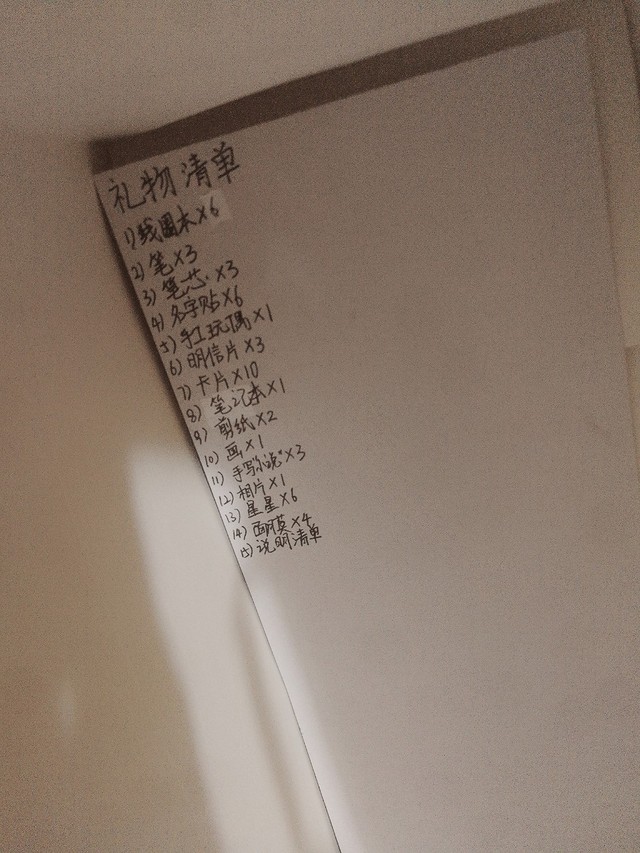 礼物清单
1) 线圈本×6
2) 笔×3
3) 笔芯×3
4) 名字贴×6
5) 手工玩偶×1
6) 明信片×3
7) 卡片×10
8) 笔记本×1
9) 剪纸×2
10) 画×1
11) 手写"小说"×3
12) 相片×1
13) 星星×6
14) 面膜×4
15) 说明清单